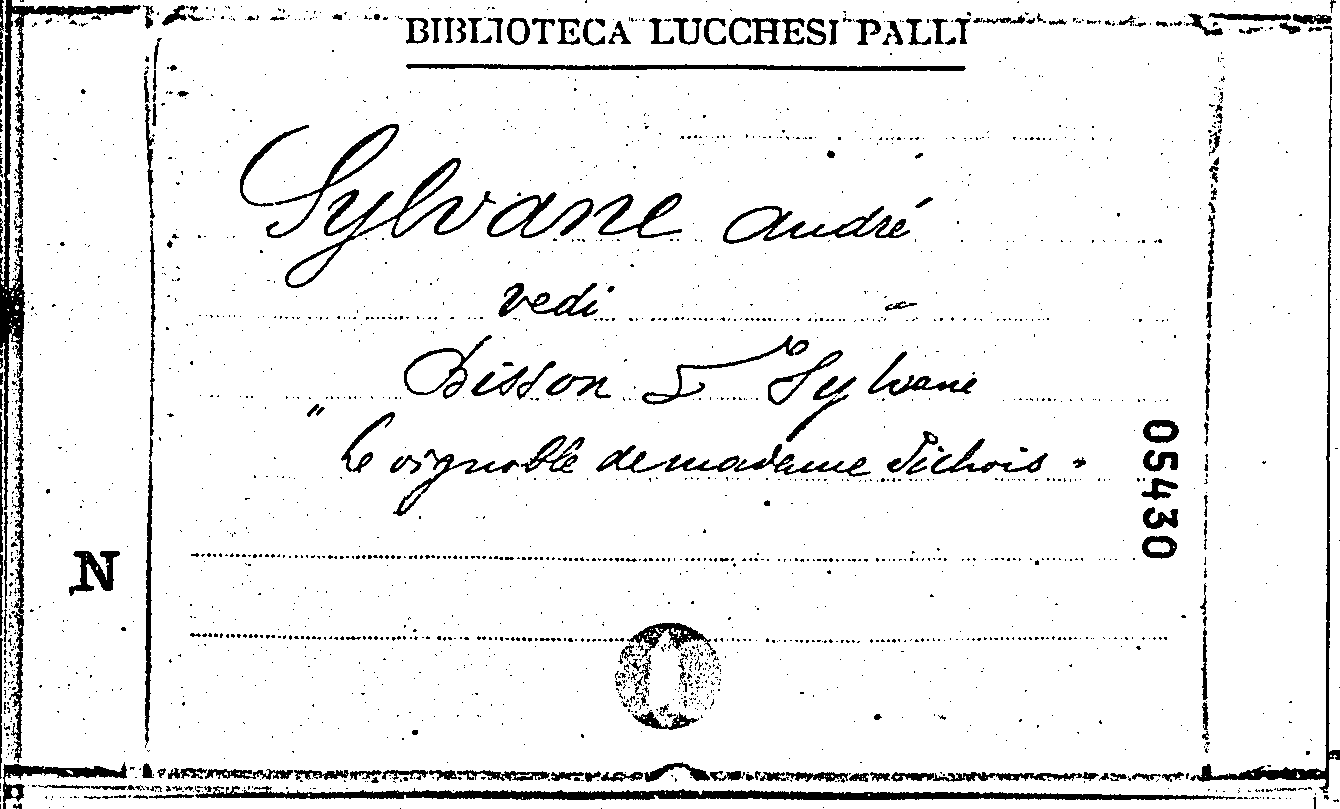 BIBLIOTECA LUCCHESI PALLI
Sylvane André
vedi
Bisson & Sylvane
" Le vignoble de madame Pichois "
05430
N